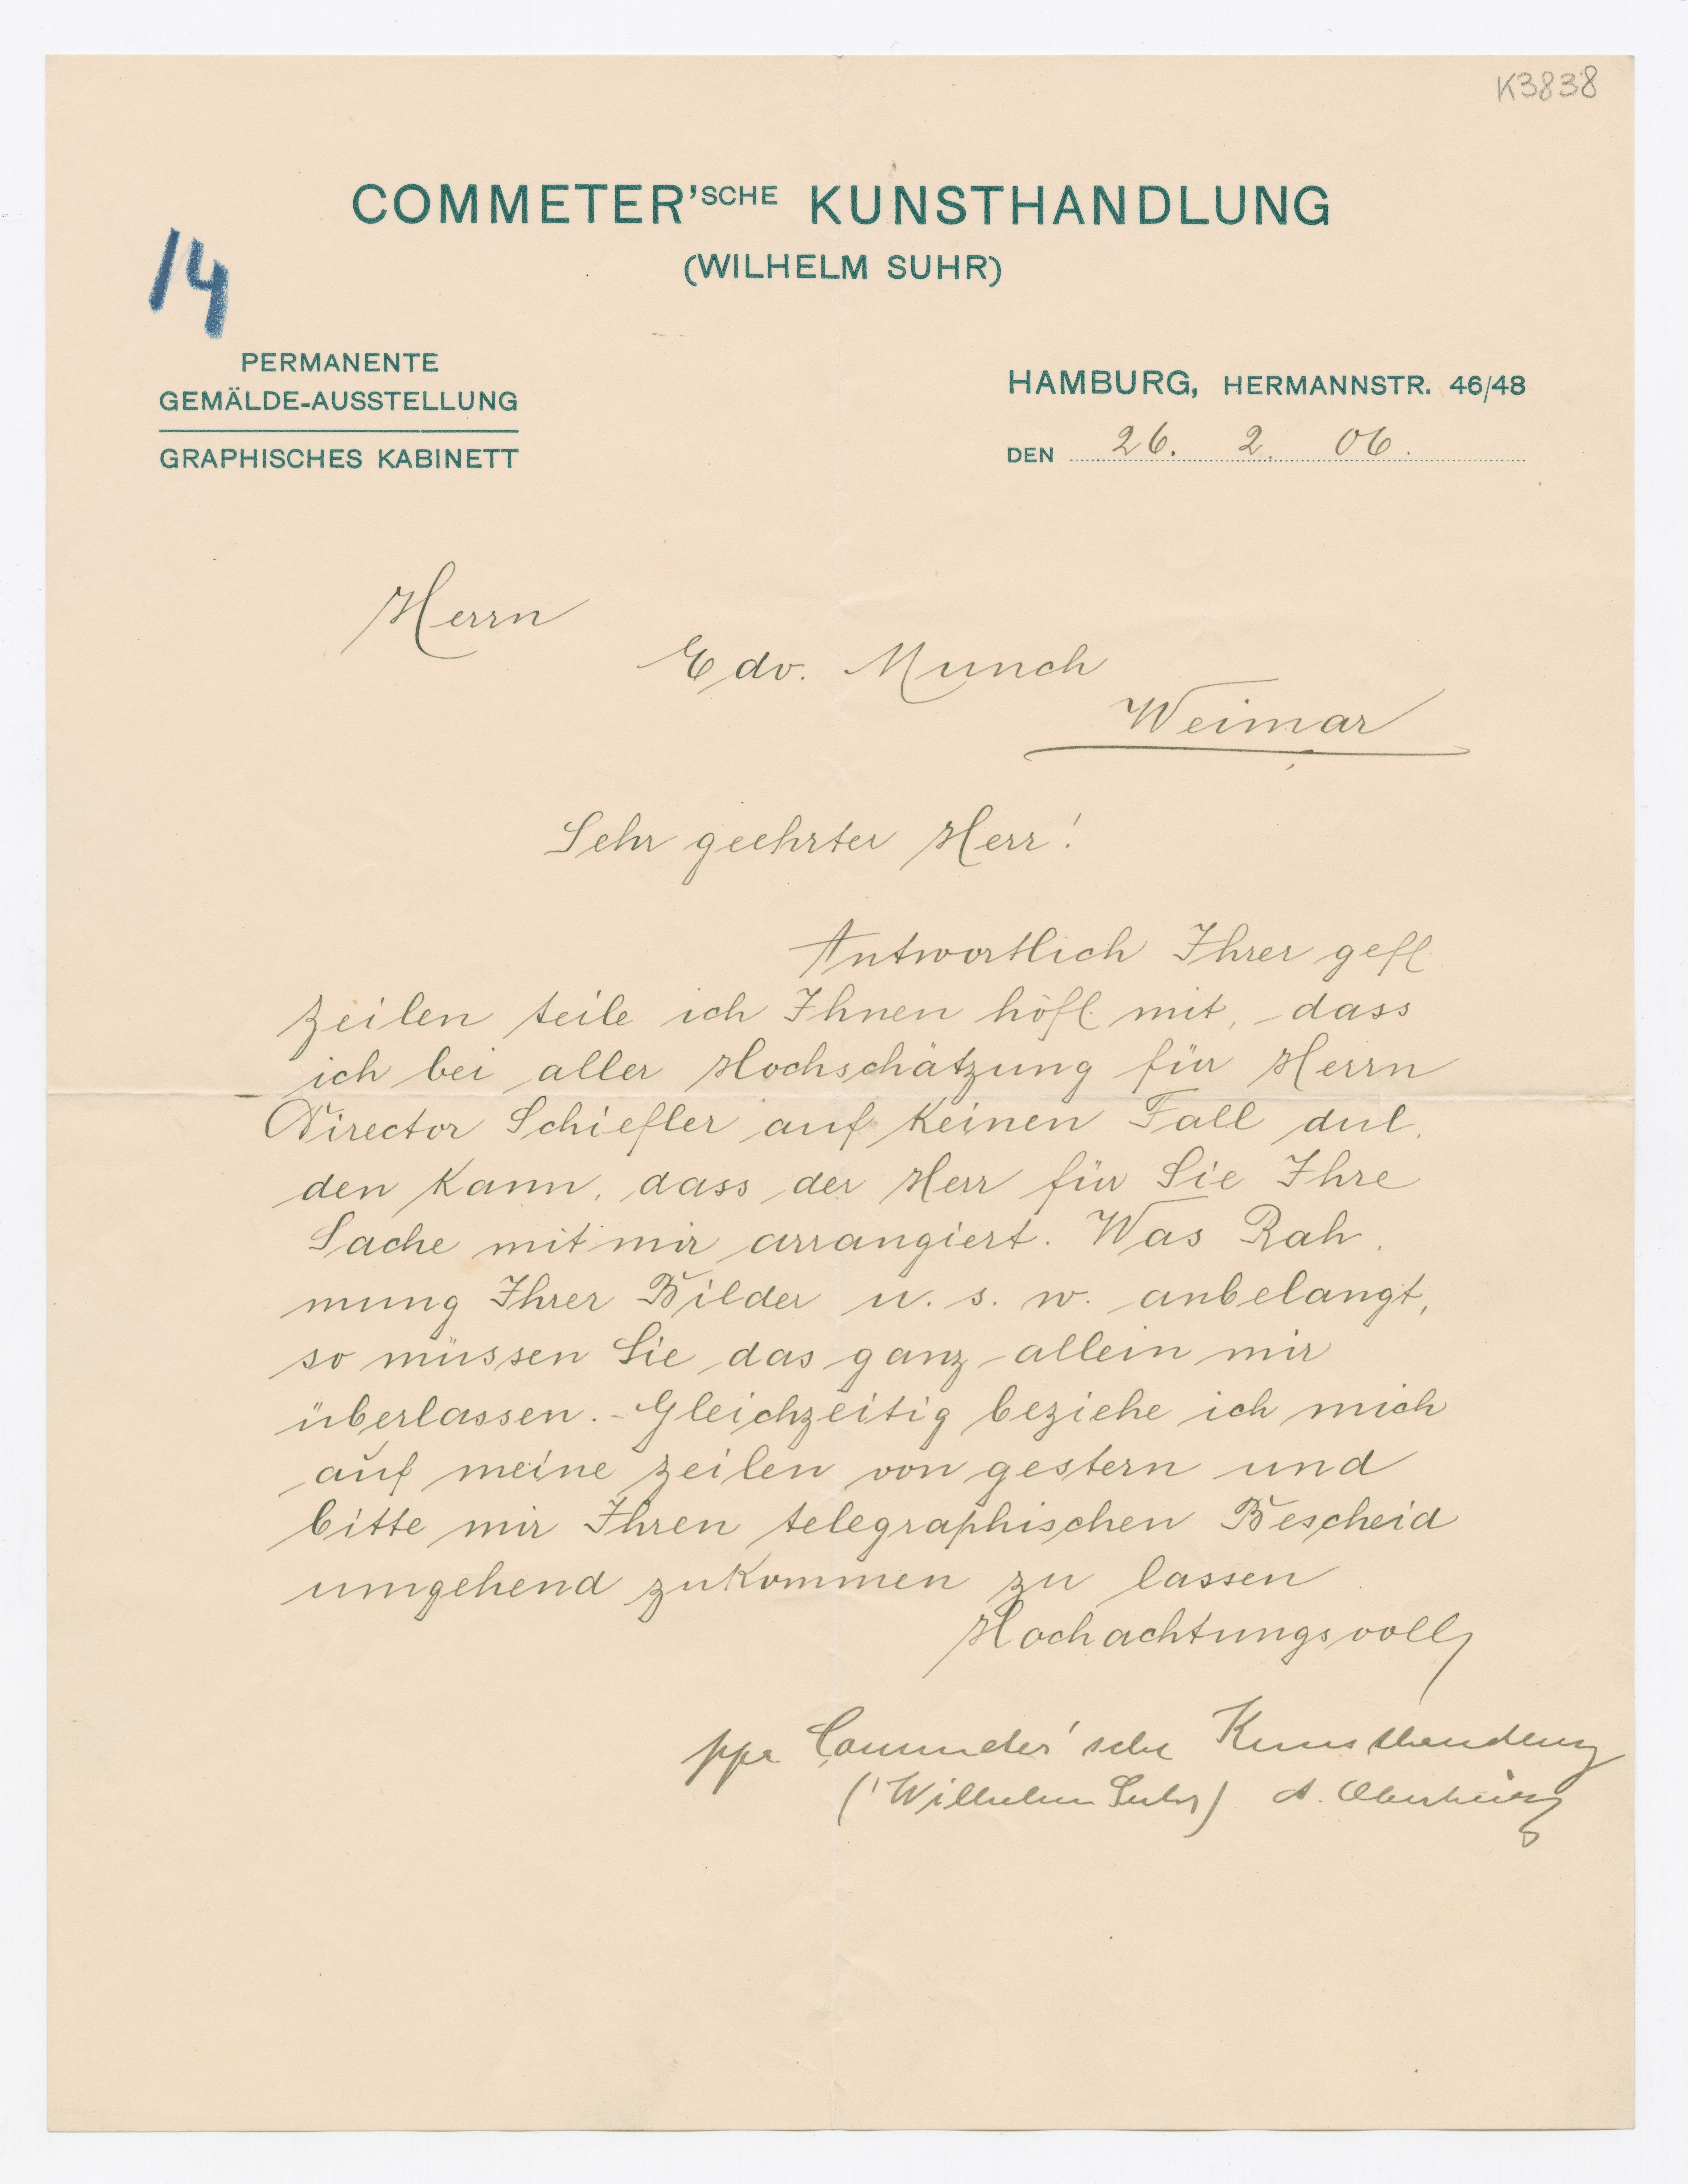 K3838
COMMETER'SCHE KUNSTHANDLUNG
(WILHELM SUHR)
14
PERMANENTE
GEMÄLDE-AUSSTELLUNG
GRAPHISCHES KABINETT
HAMBURG, HERMANNSTR. 46/48
DEN 26. 2. 06.
Herrn
Edv. Munch
Weimar
Sehr geehrter Herr!
Antwortlich Ihrer gefl.
Zeilen teile ich Ihnen höfl. mit, dass
ich bei aller Hochschätzung für Herrn
Director Schiefler auf keinen Fall dul-
den kann, dass der Herr für Sie Ihre
Sache mit mir arrangiert. Was Rah-
mung Ihrer Bilder u. s. w. anbelangt,
so müssen Sie das ganz allein mir
überlassen. - Gleichzeitig beziehe ich mich
auf meine Zeilen von gestern und
bitte mir Ihren telegraphischen Bescheid
umgehend zukommen zu lassen
Hochachtungsvoll
ppa Commeter'sche Kunsthandlung
(Wilhelm Suhr) A.